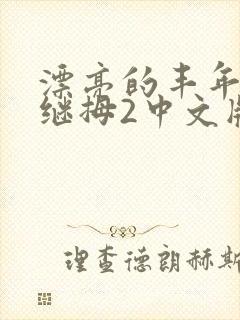 漂亮的丰年
继拇2中文版
理查德朗赫斯